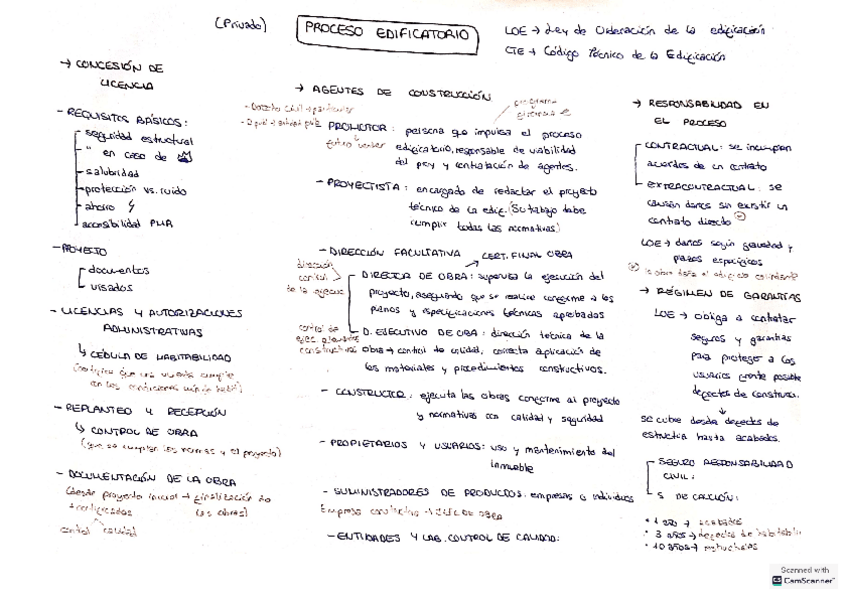 (Privado)
PROCESO EDIFICATORIO
LOE → Ley de Ordenación de la edificación
CTE → Código Técnico de la Edificación
→ CONCESIÓN DE
LICENCIA
- REQUISITOS BÁSICOS:
seguridad estructural
" en caso de
salubridad
protección vs. ruido
ahorro
accesibilidad PMR
- PROYECTO
documentos
visados
- LICENCIAS Y AUTORIZACIONES
ADMINISTRATIVAS
↳ CÉDULA DE HABITABILIDAD
- REPLANTEO Y RECEPCIÓN
↳ CONTROL DE OBRA
(que se cumplan las normas y el proyecto)
- DOCUMENTACIÓN DE LA OBRA
(desde proyecto inicial → finalización de
+ certificados las obras)
control calidad
→ AGENTES DE CONSTRUCCIÓN
PROMOTOR: persona que impulsa el proceso
edificatorio, responsable de viabilidad
del proy y contratación de agentes.
- PROYECTISTA: encargado de redactar el proyecto
técnico de la edif. (Su trabajo debe
cumplir todas las normativas)
- DIRECCIÓN FACULTATIVA → CERT. FINAL OBRA
dirección
control
DIRECTOR DE OBRA: supervisa la ejecución del
proyecto, asegurando que se realice conforme a los
planos y especificaciones técnicas aprobadas
control de
D. EJECUTIVO DE OBRA: dirección técnica de la
obra → control de calidad, correcta aplicación de
los materiales y procedimientos constructivos.
- CONSTRUCTOR: ejecuta las obras conforme al proyecto
y normativas con calidad y seguridad
- PROPIETARIOS Y USUARIOS: uso y mantenimiento del
inmueble
- SUMINISTRADORES DE PRODUCTOS: empresas o individuos
- ENTIDADES Y LAB. CONTROL DE CALIDAD:
→ RESPONSABILIDAD EN
EL PROCESO
CONTRACTUAL: se incumplen
acuerdos de un contrato
EXTRACONTRACTUAL: se
causan daños sin existir un
contrato directo
LOE → daños según gravedad y
plazos específicos
→ RÉGIMEN DE GARANTÍAS
LOE → obliga a contratar
seguros y garantías
para proteger a los
usuarios frente posible
defectos de construcc.
↓
se cubre desde defectos de
estructura hasta acabados.
SEGURO RESPONSABILIDAD
CIVIL:
S. DE CAUCIÓN:
* 1 año → acabados
* 3 años → defectos de habitabili
* 10 años → estructurales
Scanned with
CS CamScanner